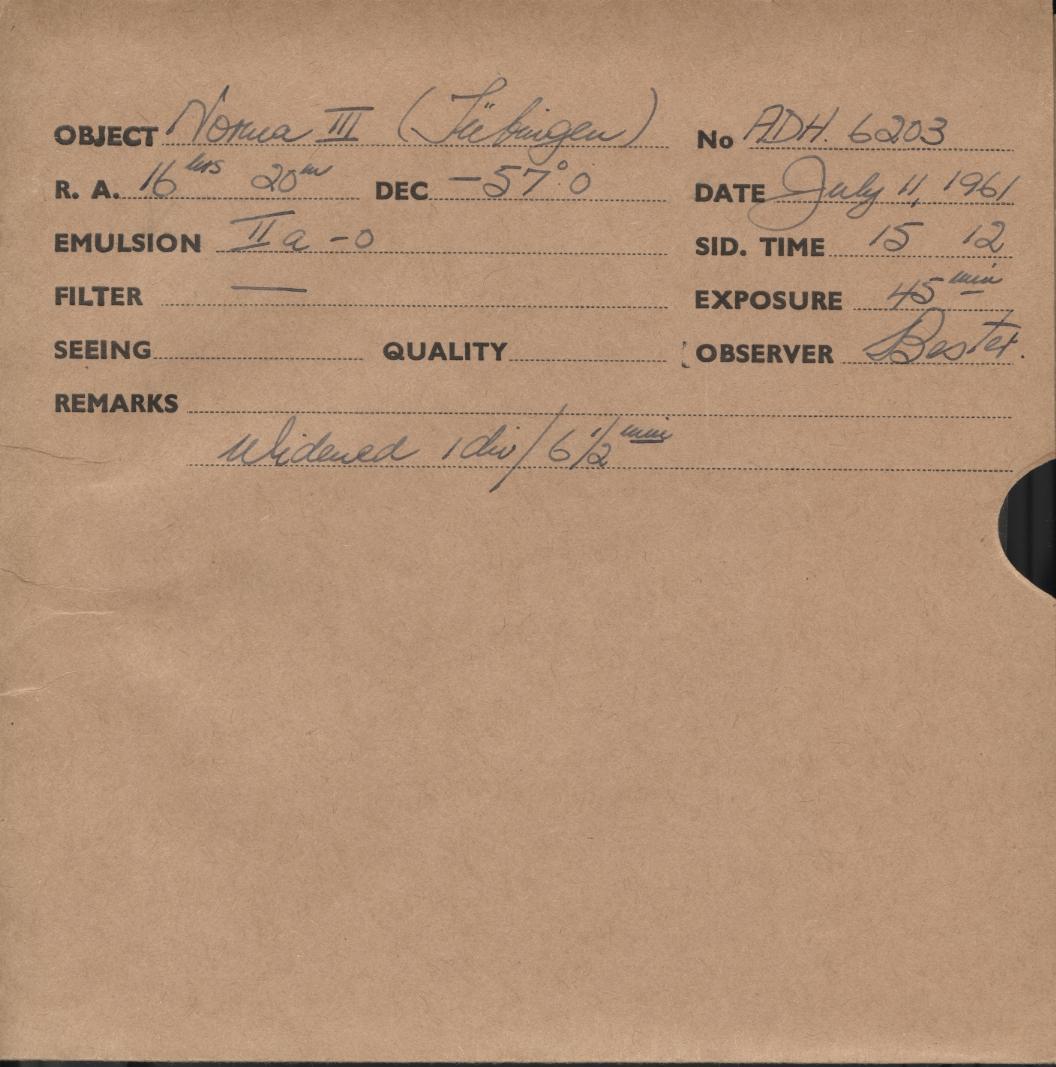 OBJECT Norma III (Tübingen) No ADH. 6203
R. A. 16 hrs 20 m DEC -57°.0 DATE July 11, 1961
EMULSION IIa-o SID. TIME 15 12
FILTER — EXPOSURE 45 min
SEEING QUALITY OBSERVER Bester.
REMARKS
Widened 1 div/6 1/2 min